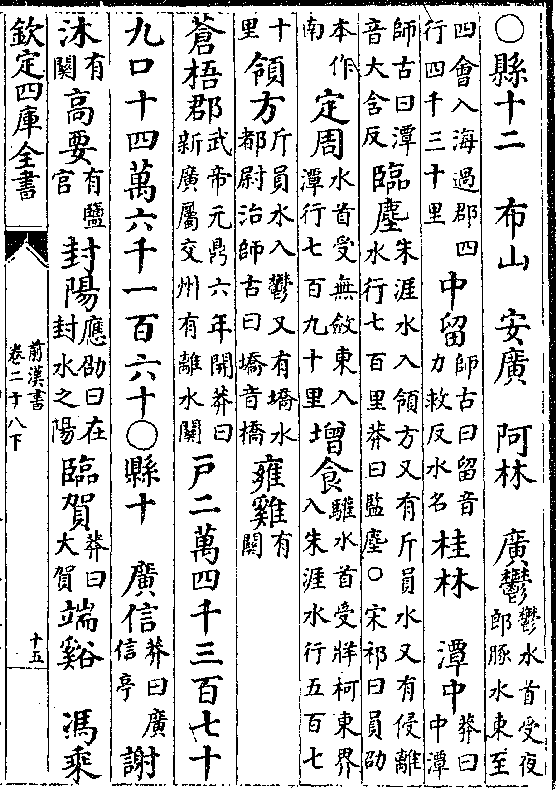 ○縣十二　布山　安廣　阿林　廣鬱鬱水首受夜郎豚水東至
四會入海過郡四行四千三十里　中留師古曰留音力救反水名　桂林　潭中莽曰中潭
師古曰潭音大含反　臨塵朱涯水入領方又有斤員水又有侵離水行七百里莽曰監塵○宋祁曰員邵
本作南　定周水首受無斂東入潭行七百九十里　增食驩水首受牂柯東界入朱涯水行五百七
十里　領方斤員水入鬱又有墧水都尉治師古曰墧音橋　雍雞有關
蒼梧郡武帝元鼎六年開莽曰新廣屬交州有離水關　戸二萬四千三百七十
九口十四萬六千一百六十○縣十　廣信莽曰廣信亭　謝
沐有關　高要有鹽官　封陽應劭曰在封水之陽　臨賀莽曰大賀　端谿　馮乘
欽定四庫全書　前漢書卷二十八下　十五